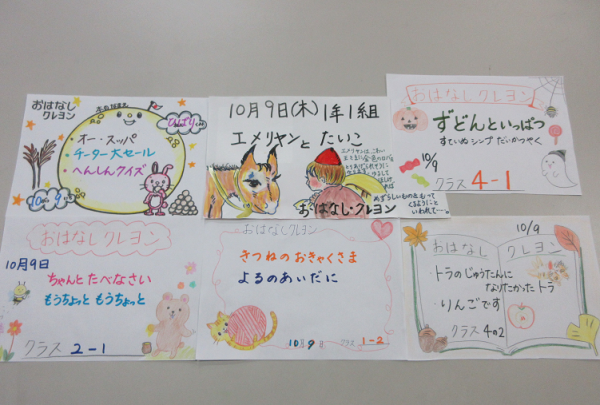 おはなし
クレヨン
ひばり
・オー・スッパ
・チーター大セール
・へんしんクイズ
10月9日
10月9日(木) 1年1組
エメリヤンと たいこ
おはなし・クレヨン
おはなしクレヨン
ずどんといっぱつ
すていぬシンプ だいかつやく
10/9
クラス 4-1
おはなしクレヨン
10月9日
ちゃんと たべなさい
もうちょっと もうちょっと
クラス 2-1
おはなしクレヨン
きつねの おきゃくさま
よるのあいだに
10/9
クラス 1-2
10/9
おはなし クレヨン
・トラのじゅうたんに
なりたかったトラ
・りんごです
クラス 4の2